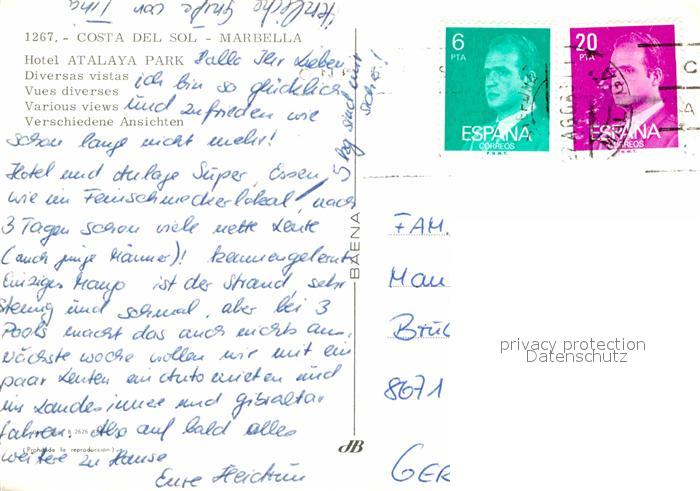 Herzliche Grüße von
1267. - COSTA DEL SOL - MARBELLA
Hotel ATALAYA PARK
Diversas vistas
Vues diverses
Various views
Verschiedene Ansichten
Hallo Ihr Lieben,
ich bin so glücklich
und zufrieden wie
schon lange nicht mehr!
Hotel und Anlage Super, Essen,
wie im Feinschmeckerlokal, nach
3 Tagen schon viele nette Leute
(auch junge Männer)! kennengelernt.
Einziges Manjo ist der Strand, sehr
steinig und schmal, aber bei 3
Pools macht das auch nichts aus.
Nächste Woche wollen wir mit ein
paar Leuten ein Auto mieten und
ins Landesinnere und Gibraltar
fahren. Also auf bald alles
weitere zu Hause
Eure Heidrun
5 kg sind mir
sicher!
(Prohibida la reproducción)
BAENA
JB
6
PTA
ESPAÑA
CORREOS
F.N.M.T.
20
PTA
ESPAÑA
CORREOS
F.N.M.T.
FAM.
8671
GER
privacy protection
Datenschutz